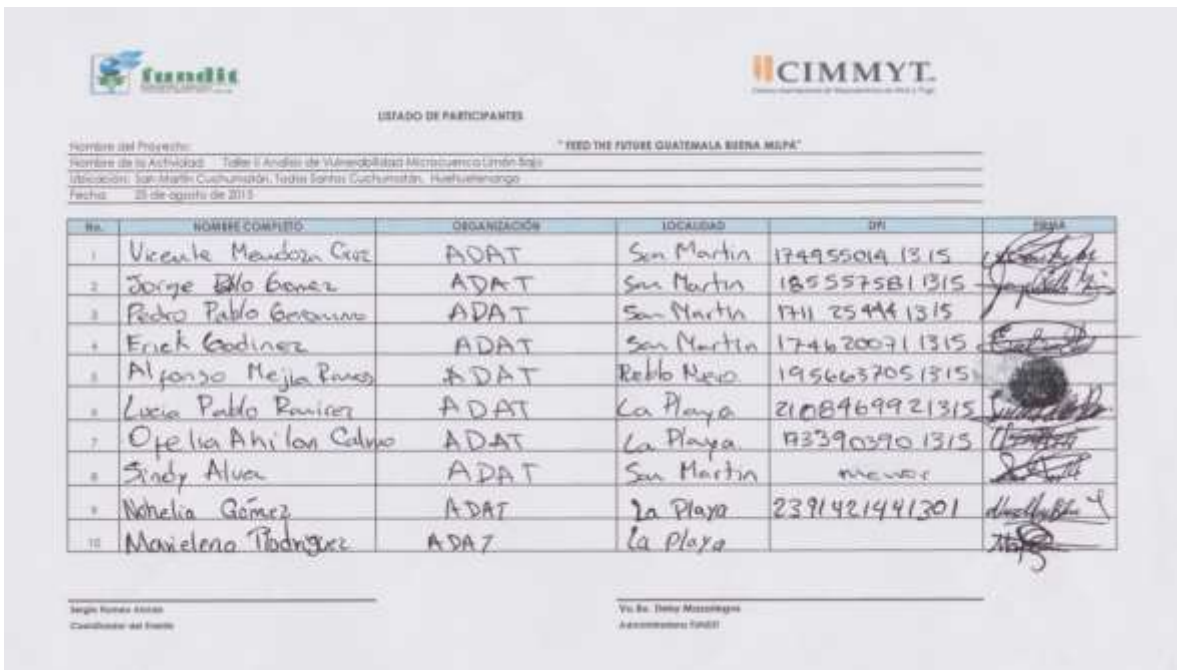 fundit
CIMMYT.
LISTADO DE PARTICIPANTES
Nombre del Proyecto: " FEED THE FUTURE GUATEMALA BUENA MILPA"
Nombre de la Actividad: Taller II Analisis de Vulnerabilidad Microcuenca Limón Bajo
Ubicación: San Martín Cuchumatán, Todos Santos Cuchumatán, Huehuetenango
Fecha: 25 de agosto de 2015
No. NOMBRE COMPLETO ORGANIZACIÓN LOCALIDAD DPI FIRMA
1 Vicente Mendoza Cruz ADAT San Martin 174955014 1315
2 Jorge Gomez ADAT San Martin 185557581 1315
3 Pedro Pablo ADAT San Martin 1711 25444 1315
4 Erick Godinez ADAT San Martin 174620071 1315
5 Alfonso Mejia Ramos ADAT 195663705 1315
6 Lucia Pablo Ramirez ADAT La Playa 2108469921315
7 Ofelia Ahilon Calmo ADAT La Playa 173390390 1315
8 Sindy Alva ADAT San Martin menor
9 Nohelia Gómez ADAT La Playa 2391421441301
10 Marielena Rodriguez ADAT La Playa
Sergio Romeo
Coordinador del Evento
Vo. Bo.
Administradora FUNDIT